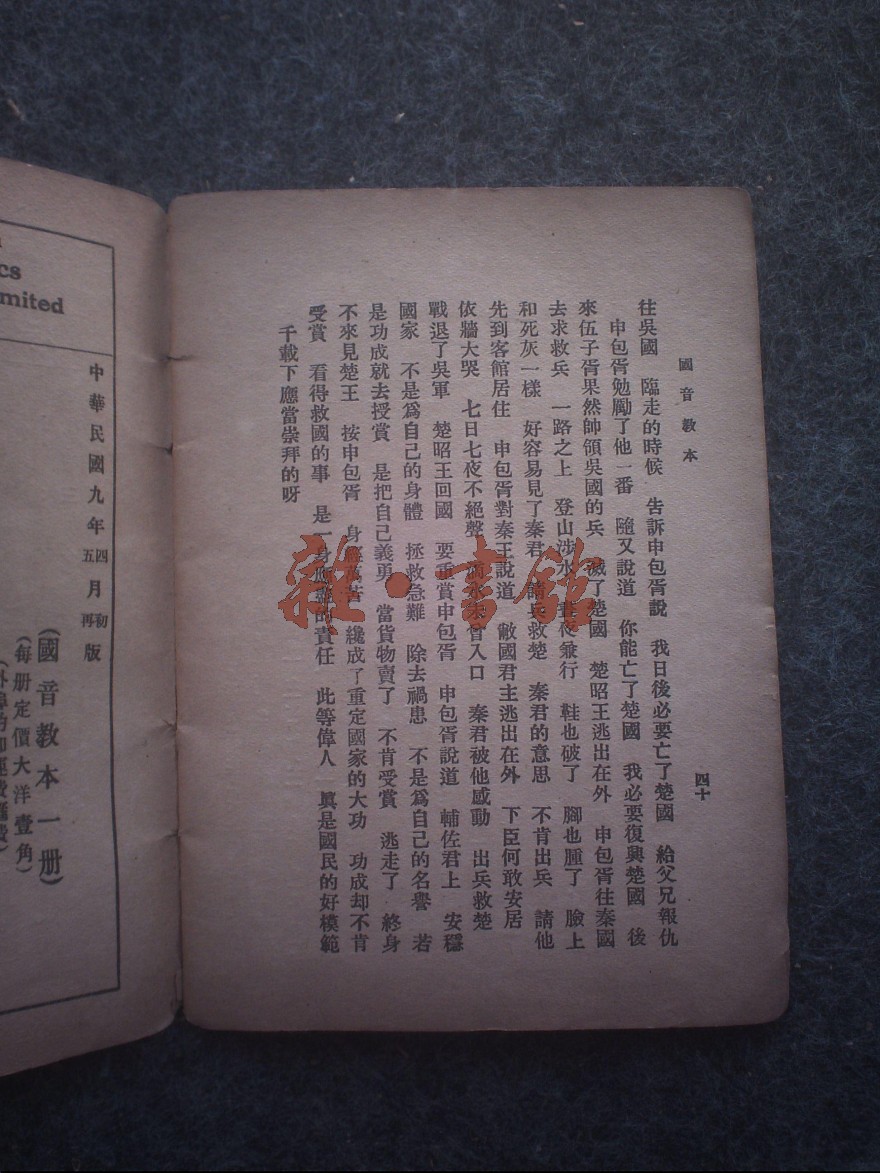 國音教本 四十
往吳國 臨走的時候 告訴申包胥說 我日後必要亡了楚國 給父兄報仇
申包胥勉勵了他一番 隨又說道 你能亡了楚國 我必要復興楚國 後
來伍子胥果然帥領吳國的兵 滅了楚國 楚昭王逃出在外 申包胥往秦國
去求救兵 一路之上 登山涉水 晝夜兼行 鞋也破了 腳也腫了 臉上
和死灰一樣 好容易見了秦君 請兵救楚 秦君的意思 不肯出兵 請他
先到客館居住 申包胥對秦王說道 敝國君主逃出在外 下臣何敢安居
依牆大哭 七日七夜不絕聲 滴水未曾入口 秦君被他感動 出兵救楚
戰退了吳軍 楚昭王回國 要重賞申包胥 申包胥說道 輔佐君上 安穩
國家 不是爲自己的身體 拯救急難 除去禍患 不是爲自己的名譽 若
是功成就去授賞 是把自己義勇 當貨物賣了 不肯受賞 逃走了 終身
不來見楚王 按申包胥 身 苦 纔成了重定國家的大功 功成却不肯
受賞 看得救國的事 是一身應盡的責任 此等偉人 眞是國民的好模範
千載下應當崇拜的呀
雜·書館
cs
mited
中華民國九年四月初版
五 再
(國音教本一册)
(每册定價大洋壹角)